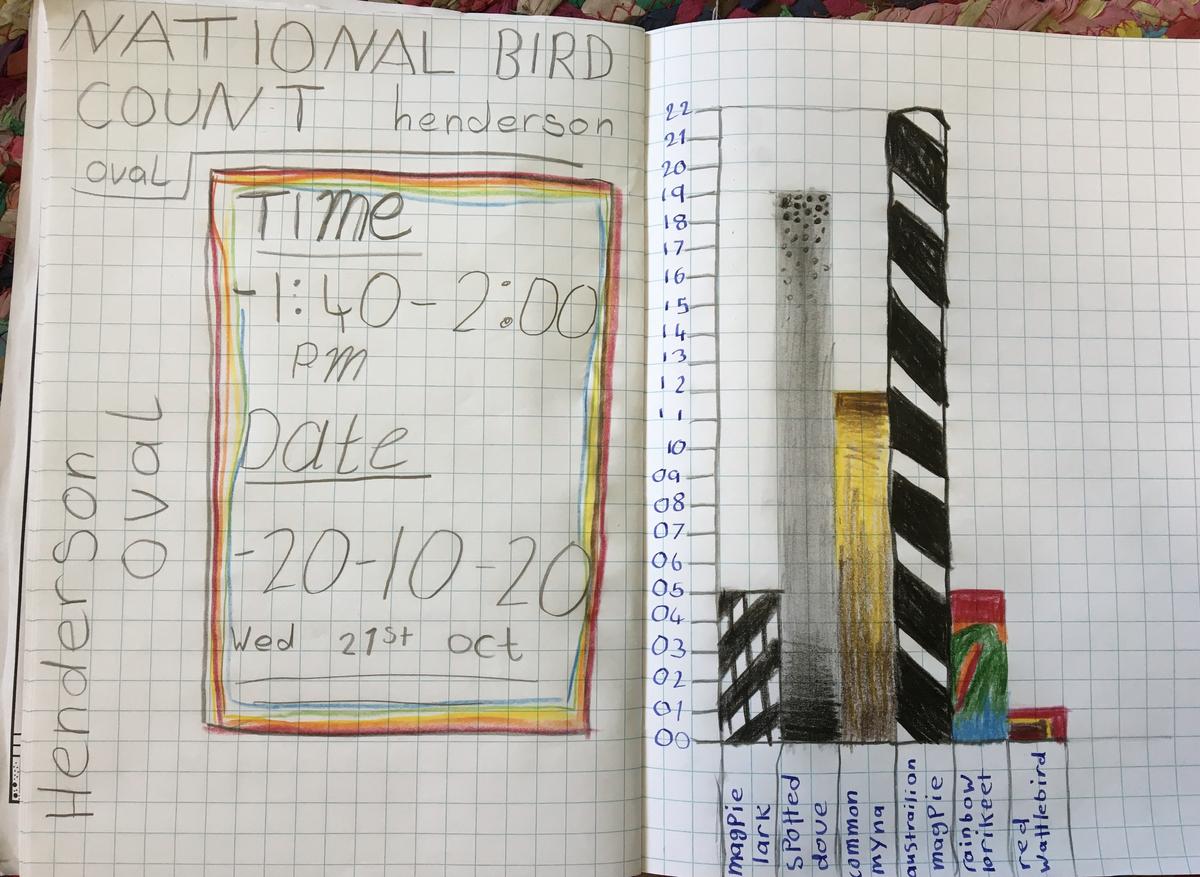 NATIONAL BIRD
COUNT henderson
oval
Time
-1:40-2:00
pm
Date
-20-10-20
Wed 21st oct
Henderson
oval
22
21
20
19
18
17
16
15
14
13
12
11
10
09
08
07
06
05
04
03
02
01
00
magpie
lark
spotted
dove
common
myna
austrailion
magpie
rainbow
lorikeet
red
wattlebird